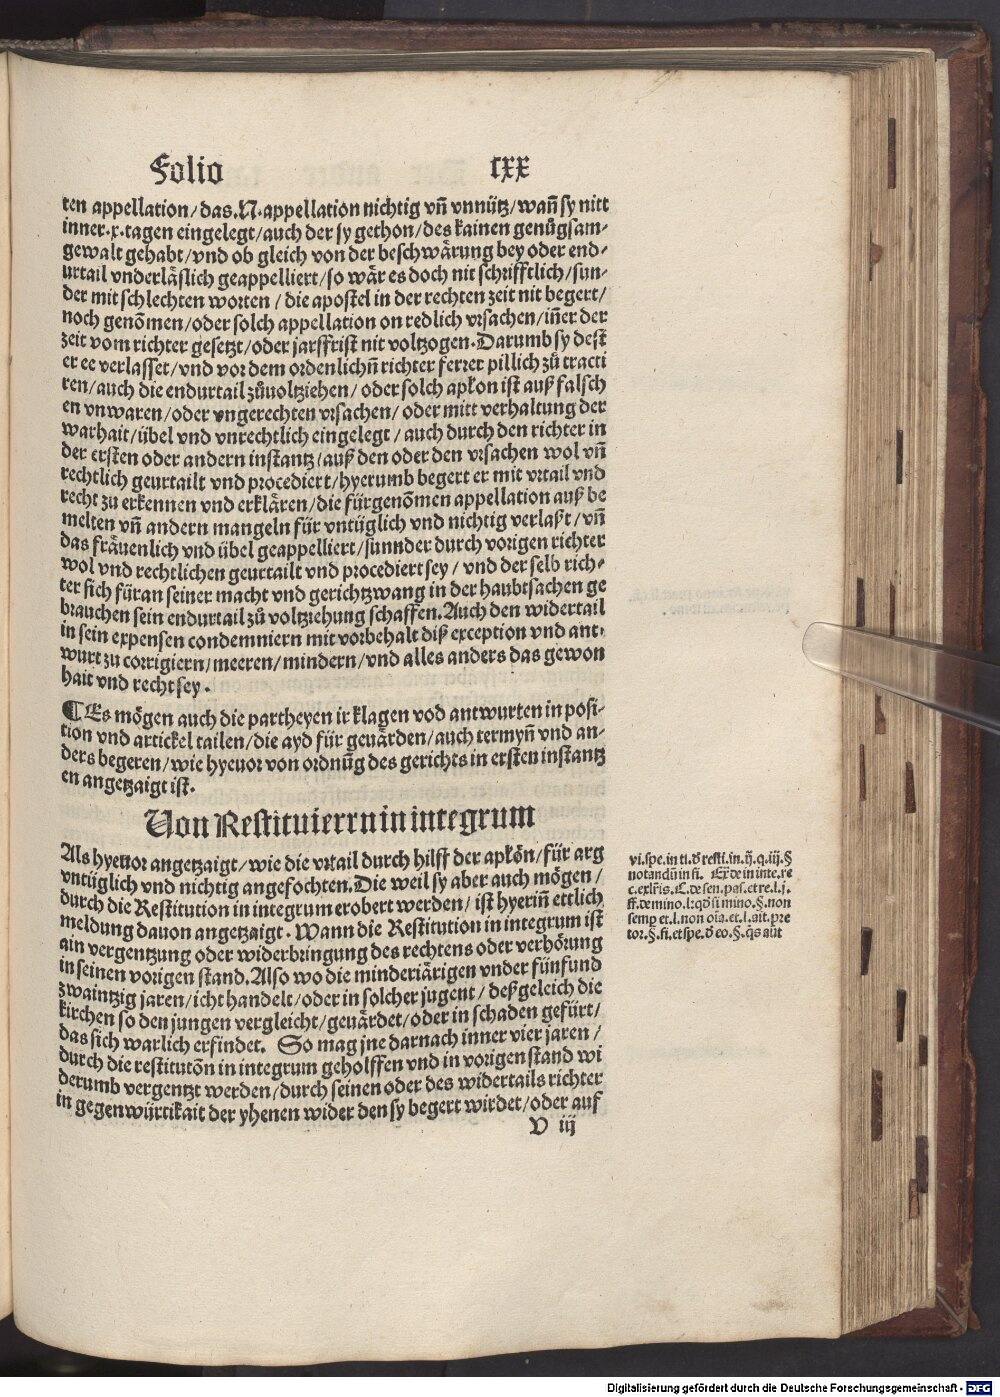 Folio CXX
ten appellation/das.N.appellation nichtig vñ vnnütz/wañ sy nitt
inner.x.tagen eingelegt/auch der sy gethon/des kainen genůgsam⸗
gewalt gehabt/vnd ob gleich von der beschwärung bey oder end⸗
urtail vnderläslich geappelliert/so wär es doch nit schrifftlich/sun⸗
der mit schlechten worten/die apostel in der rechten zeit nit begert/
noch genõmen/oder solch appellation on redlich vrsachen/iñer der
zeit vom richter gesetzt/oder jarsfrist nit voltzogen.Darumb sy dest
er ee verlasset/vnd vor dem ordenlichñ richter ferrer pillich zů tracti
ren/auch die endurtail zůvoltziehen/oder solch apłon ist auß falsch
en vnwaren/oder vngerechten vrsachen/oder mitt verhaltung der
warhait/übel vnd vnrechtlich eingelegt/auch durch den richter in
der ersten oder andern instantz/auß den oder den vrsachen wol vñ
rechtlich geurtailt vnd procediert/hyerumb begert er mit vrtail vnd
recht zu erkennen vnd erklären/die fürgenõmen appellation auß be
melten vñ andern mangeln für vntüglich vnd nichtig verlaßt/vñ
das fräuenlich vnd übel geappelliert/sunnder durch vorigen richter
wol vnd rechtlichen geurtailt vnd procediert sey/vnd der selb rich⸗
ter sich füran seiner macht vnd gerichtzwang in der haubtsachen ge
brauchen sein endurtail zů voltziehung schaffen.Auch den widertail
in sein expensen condemniern mit vorbehalt diß exception vnd ant⸗
wurt zu corrigiern/meeren/mindern/vnd alles anders das gewon
hait vnd recht sey.
¶Es mögen auch die partheyen ir klagen vod antwurten in posi⸗
tion vnd artickel tailen/die ayd für geuärden/auch termyñ vnd an⸗
ders begeren/wie hyeuor von ordnũg des gerichts in ersten instantz
en angetzaigt ist.
Von Restituierrn in integrum
Als hyeuor angetzaigt/wie die vrtail durch hilff der apłõn/für arg
vntüglich vnd nichtig angefochten.Die weil sy aber auch mögen/
durch die Restitution in integrum erobert werden/ist hyeriñ ettlich
meldung dauon angetzaigt.Wann die Restitution in integrum ist
ain vergentzung oder widerbringung des rechtens oder verhörung
in seinen vorigen stand.Also wo die minderiärigen vnder fünfund
zwaintzig jaren/icht handelt/oder in solcher jugent/deßgeleich die
kirchen so den jungen vergleicht/geuärdet/oder in schaden gefürt/
das sich warlich erfindet. So mag jne darnach inner vier jaren/
durch die restitutõn in integrum geholffen vnd in vorigen stand wi
derumb vergentzt werden/durch seinen oder des widertails richter
in gegenwürtikait der yhenen wider den sy begert wirdet/oder auf
V iij
vi.spe.in ti.d̃ resti.in.ij.q.iij.§
notandũ in fi. Ex̃ de in inte.re
c.exlr̃is.C.de sen.pas.et re.l.j.
ff.de mino.l:qđ si mino.§.non
semp et.l.non oĩa.et.l.ait.pre
tor.§.fi.et spe.d̃ eo.§.q̃s aũt
Digitalisierung gefördert durch die Deutsche Forschungsgemeinschaft - DFG